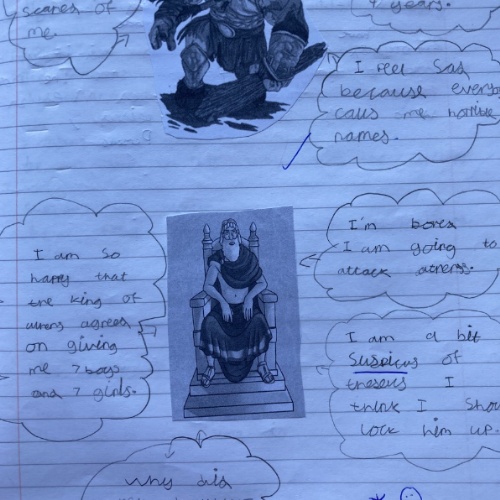 scares of
me.
years.
I feel Sad
because everybo
calls me horrible
names.
I am so
happy that
the king of
agrees
on giving
me 7 boys
and 7 girls.
I'm bored
I am going to
attack athens.
I am a bit
Suspicus of
theseus I
think I Shou
lock him up.
Why did